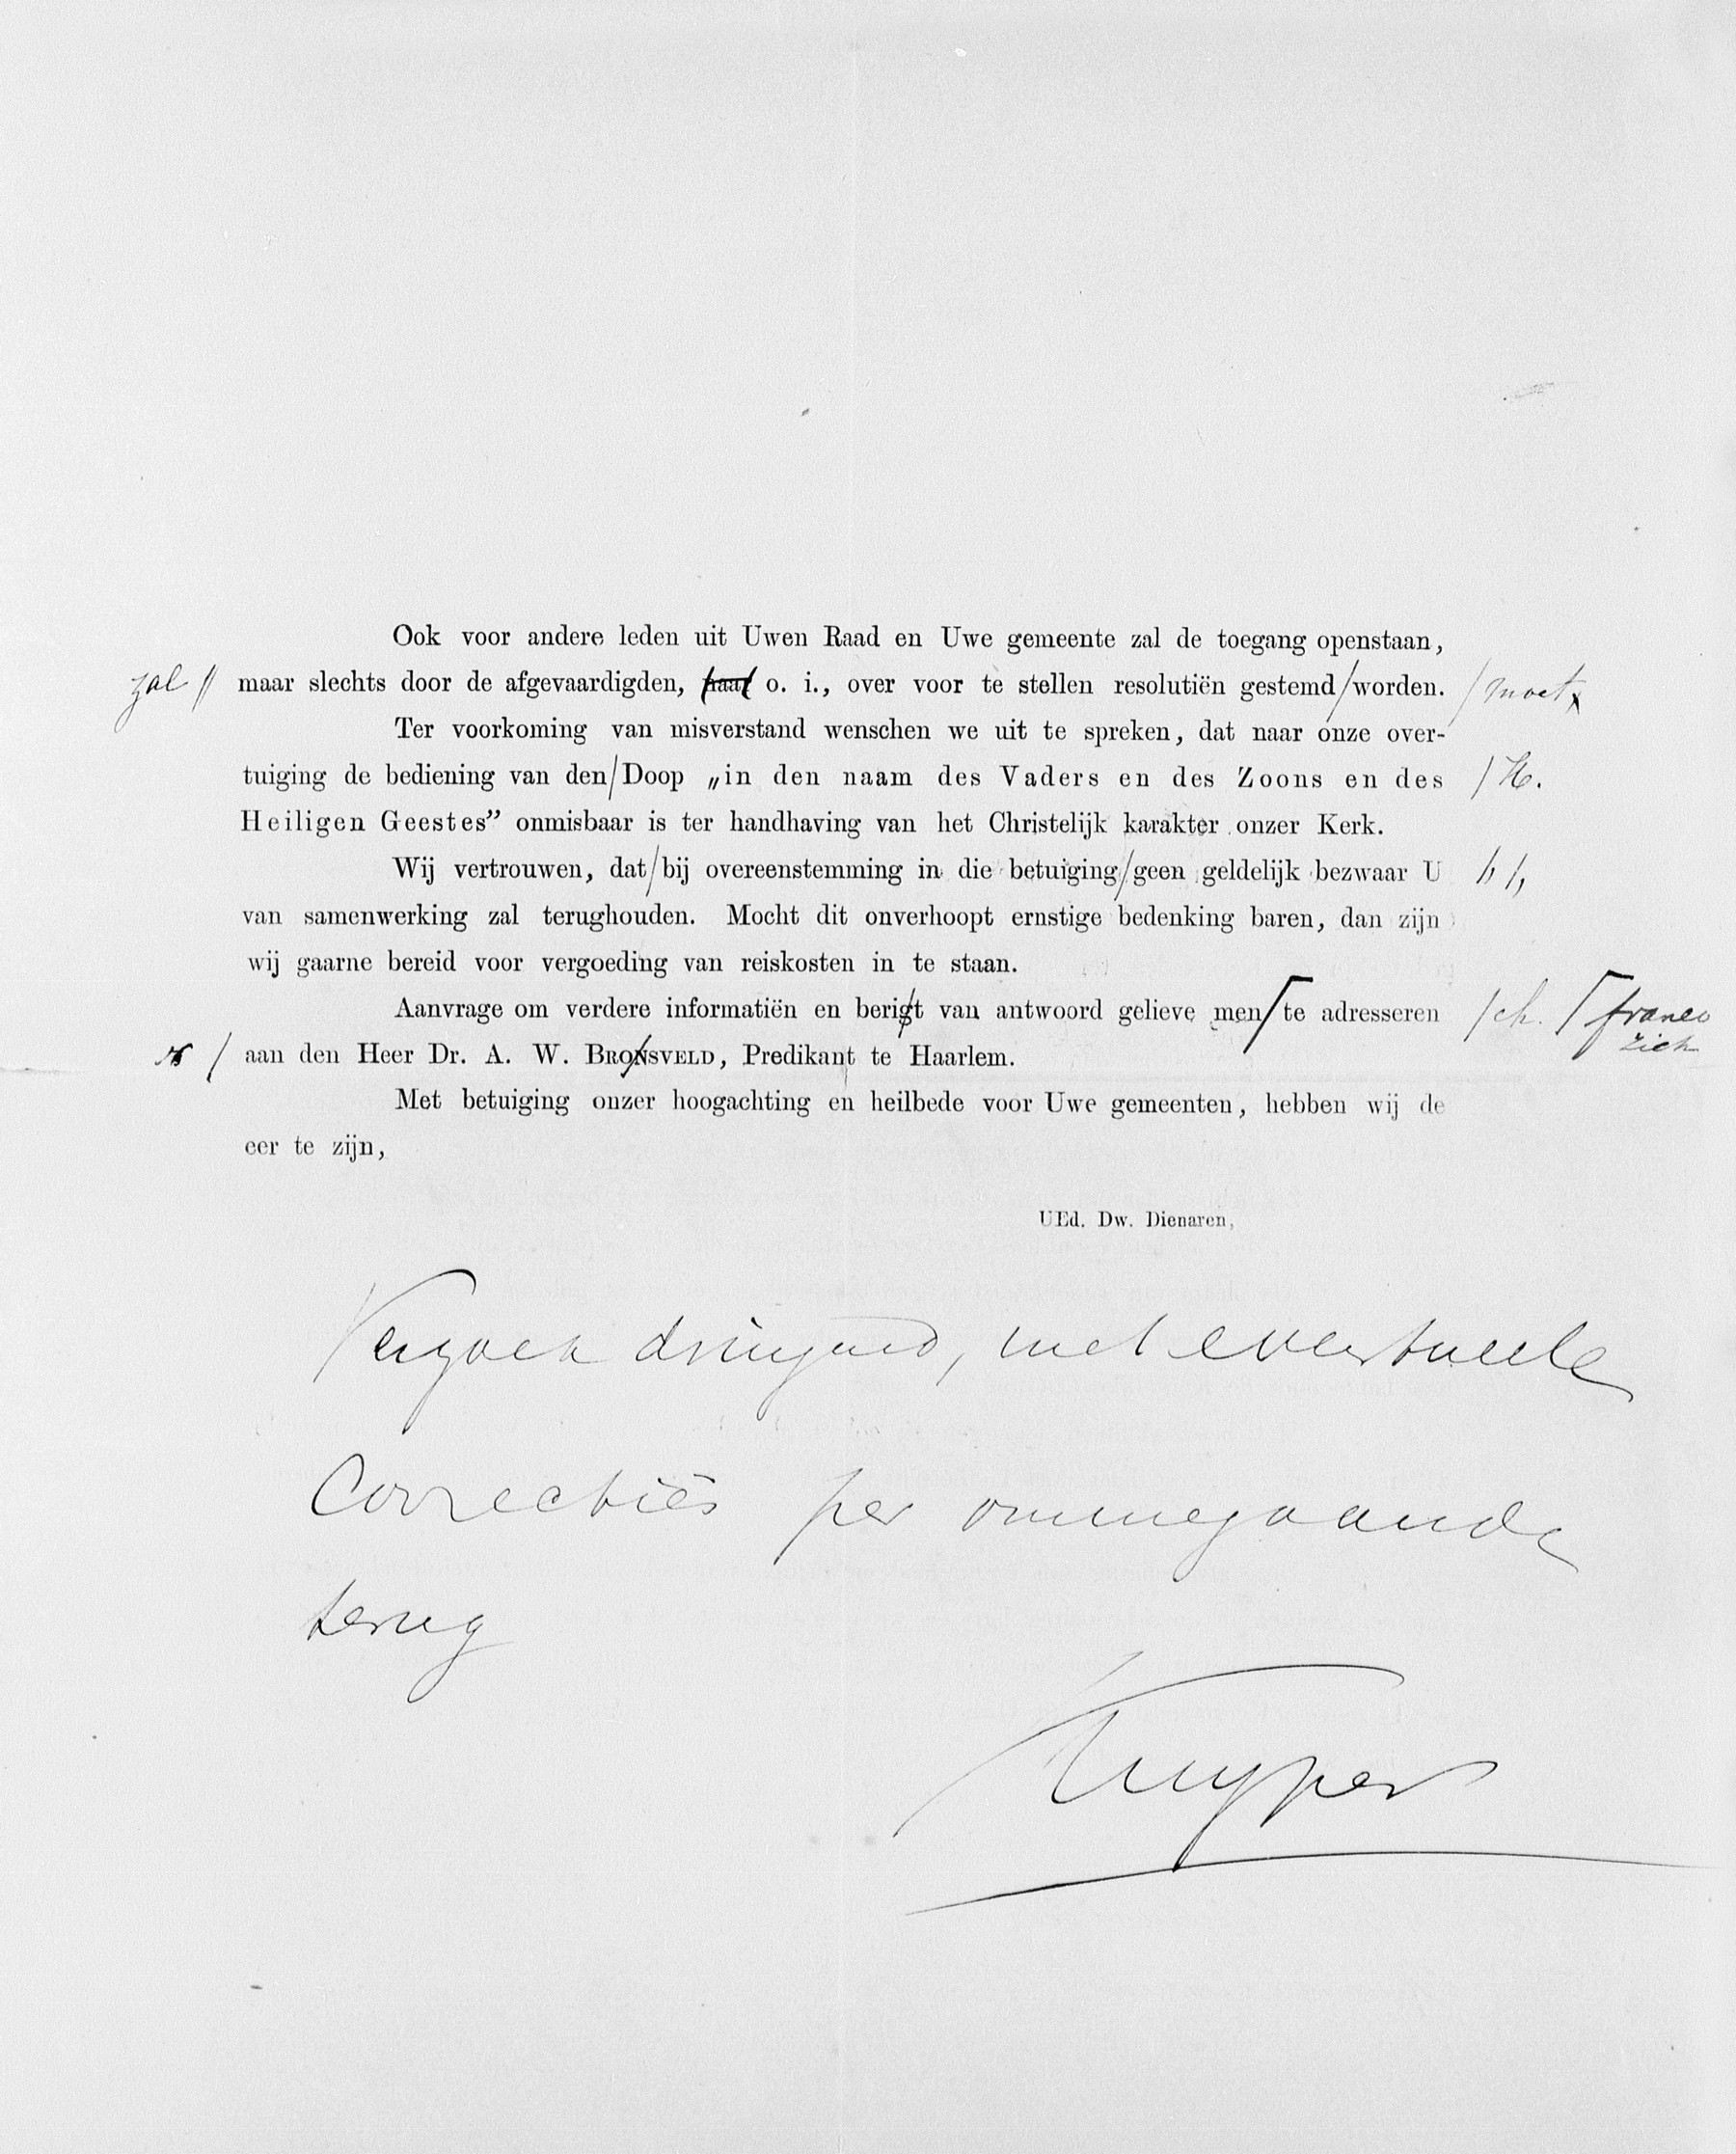 Ook voor andere leden uit Uwen Raad en Uwe gemeente zal de toegang openstaan,
zal // maar slechts door de afgevaardigden, o. i., over voor te stellen resolutiën gestemd/worden. / moet
Ter voorkoming van misverstand wenschen we uit te spreken, dat naar onze over-
tuiging de bediening van den/Doop „in den naam des Vaders en des Zoons en des / H.
Heiligen Geestes” onmisbaar is ter handhaving van het Christelijk karakter onzer Kerk.
Wij vertrouwen, dat/bij overeenstemming in die betuiging/geen geldelijk bezwaar U /, /,
van samenwerking zal terughouden. Mocht dit onverhoopt ernstige bedenking baren, dan zijn
wij gaarne bereid voor vergoeding van reiskosten in te staan.
Aanvrage om verdere informatiën en berigt van antwoord gelieve men te adresseren / ch. franco
zich
/ aan den Heer Dr. A. W. BRONSVELD, Predikant te Haarlem.
Met betuiging onzer hoogachting en heilbede voor Uwe gemeenten, hebben wij de
eer te zijn,
UEd. Dw. Dienaren,
Verzoek dringend, met eventueele
Correctiës per ommegaande
terug
Kuyper